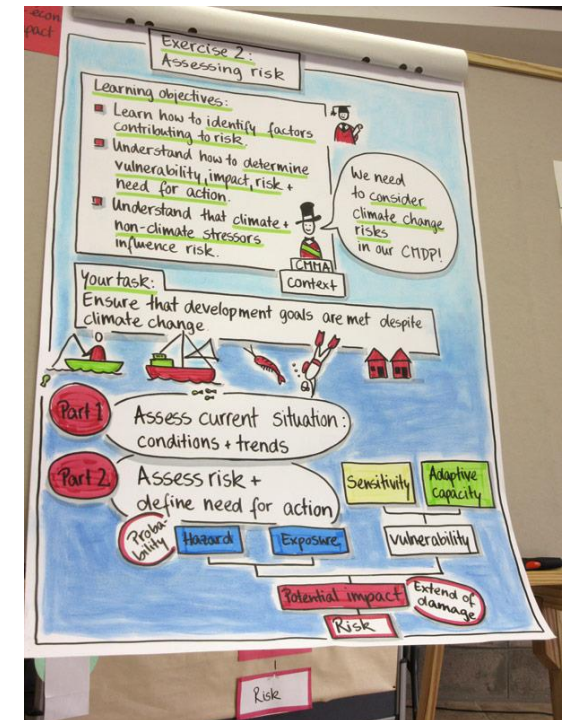 econ
pact
Exercise 2:
Assessing risk
Learning objectives:
Learn how to identify factors
contributing to risk.
Understand how to determine
vulnerability, impact, risk +
need for action.
Understand that climate +
non-climate stressors
influence risk.
We need
to consider
climate change
risks
in our CMDP!
CMMA
context
Your task:
Ensure that development goals are met despite
climate change
Part 1
Assess current situation:
conditions + trends
Part 2
Assess risk +
define need for action
Sensitivity
Adaptive
capacity
Proba-
bility
Hazard
Exposure
vulnerability
Potential impact
Extend of
damage
Risk
Risk